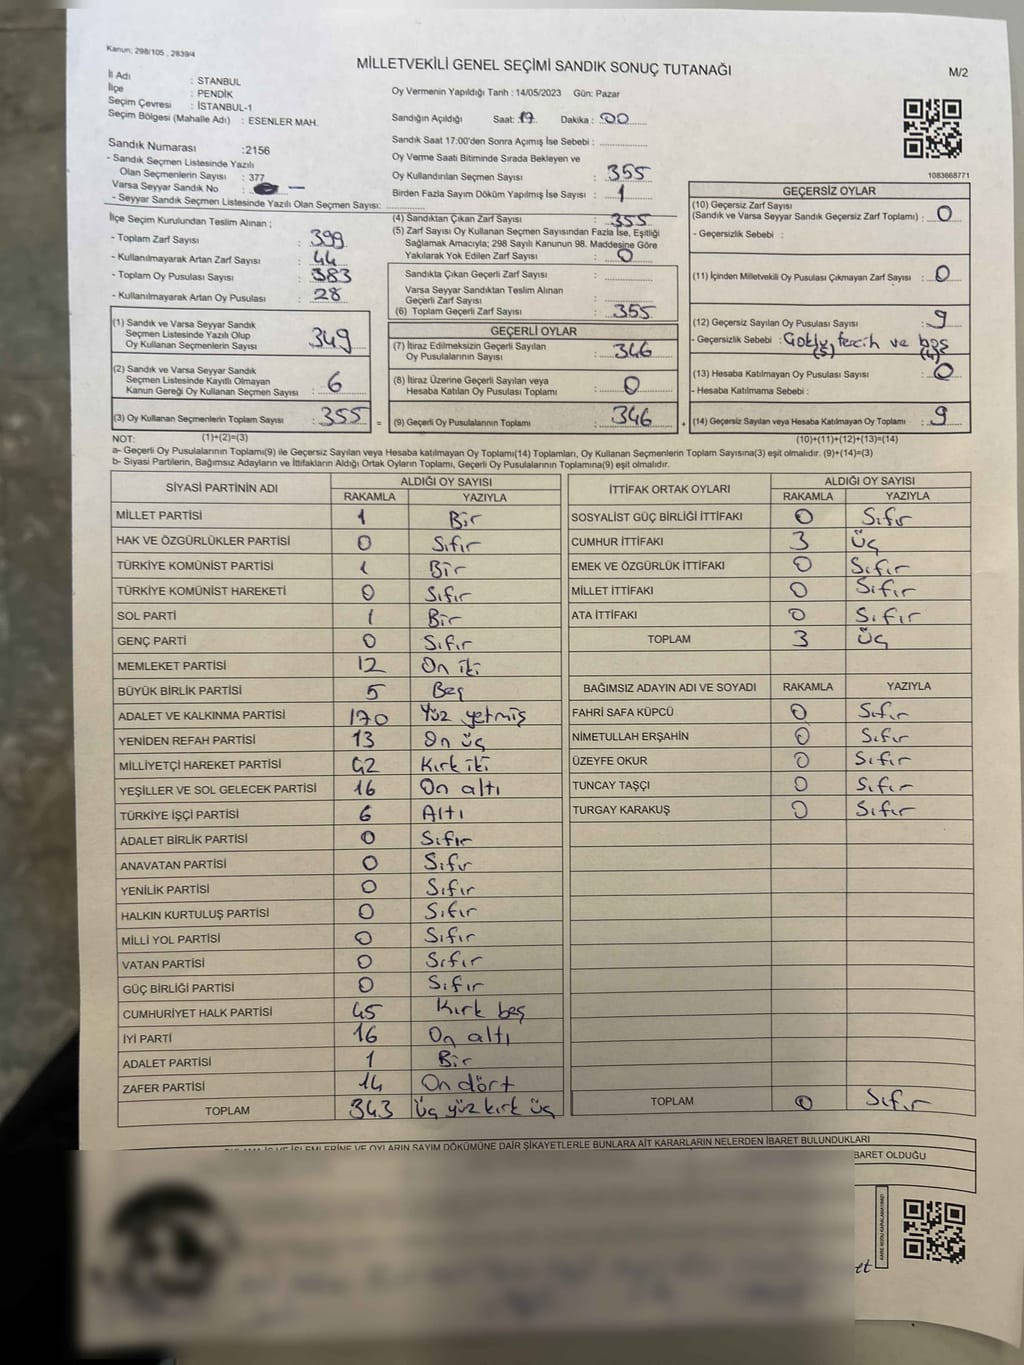 Kanun; 298/105 , 2839/4
MİLLETVEKİLİ GENEL SEÇİMİ SANDIK SONUÇ TUTANAĞI
M/2
İl Adı : STANBUL
İlçe : PENDİK
Seçim Çevresi : İSTANBUL-1
Seçim Bölgesi (Mahalle Adı) : ESENLER MAH.
Oy Vermenin Yapıldığı Tarih : 14/05/2023 Gün: Pazar
Sandığın Açıldığı Saat: 17 Dakika : 00
Sandık Saat 17:00'den Sonra Açımış İse Sebebi :
Sandık Numarası :2156
- Sandık Seçmen Listesinde Yazılı
Olan Seçmenlerin Sayısı : 377
Varsa Seyyar Sandık No : —
- Seyyar Sandık Seçmen Listesinde Yazılı Olan Seçmen Sayısı:
Oy Verme Saati Bitiminde Sırada Bekleyen ve
Oy Kullandırılan Seçmen Sayısı : 355
Birden Fazla Sayım Döküm Yapılmış İse Sayısı : 1
1083668771
İlçe Seçim Kurulundan Teslim Alınan ;
- Toplam Zarf Sayısı : 399
- Kullanılmayarak Artan Zarf Sayısı : 44
- Toplam Oy Pusulası Sayısı : 383
- Kullanılmayarak Artan Oy Pusulası : 28
(4) Sandıktan Çıkan Zarf Sayısı : 355
(5) Zarf Sayısı Oy Kullanan Seçmen Sayısından Fazla İse, Eşitliği
Sağlamak Amacıyla; 298 Sayılı Kanunun 98. Maddesine Göre
Yakılarak Yok Edilen Zarf Sayısı : 0
Sandıkta Çıkan Geçerli Zarf Sayısı :
Varsa Seyyar Sandıktan Teslim Alınan
Geçerli Zarf Sayısı :
(6) Toplam Geçerli Zarf Sayısı : 355
GEÇERSİZ OYLAR
(10) Geçersiz Zarf Sayısı
(Sandık ve Varsa Seyyar Sandık Geçersiz Zarf Toplamı) : 0
- Geçersizlik Sebebi :
(11) İçinden Milletvekili Oy Pusulası Çıkmayan Zarf Sayısı : 0
(12) Geçersiz Sayılan Oy Pusulası Sayısı : 9
- Geçersizlik Sebebi : Çoklu, tercih ve boş
(5) (4)
(13) Hesaba Katılmayan Oy Pusulası Sayısı : 0
- Hesaba Katılmama Sebebi :
(14) Geçersiz Sayılan veya Hesaba Katılmayan Oy Toplamı : 9
(1) Sandık ve Varsa Seyyar Sandık
Seçmen Listesinde Yazılı Olup
Oy Kullanan Seçmenlerin Sayısı : 349
(2) Sandık ve Varsa Seyyar Sandık
Seçmen Listesinde Kayıtlı Olmayan
Kanun Gereği Oy Kullanan Seçmen Sayısı : 6
(3) Oy Kullanan Seçmenlerin Toplam Sayısı : 355 =
GEÇERLİ OYLAR
(7) İtiraz Edilmeksizin Geçerli Sayılan
Oy Pusulalarının Sayısı : 346
(8) İtiraz Üzerine Geçerli Sayılan veya
Hesaba Katılan Oy Pusulası Toplamı : 0
(9) Geçerli Oy Pusulalarının Toplamı : 346 +
NOT: (1)+(2)=(3)
(10)+(11)+(12)+(13)=(14)
a- Geçerli Oy Pusulalarının Toplamı(9) ile Geçersiz Sayılan veya Hesaba katılmayan Oy Toplamı(14) Toplamları, Oy Kullanan Seçmenlerin Toplam Sayısına(3) eşit olmalıdır. (9)+(14)=(3)
b- Siyasi Partilerin, Bağımsız Adayların ve İttifakların Aldığı Ortak Oyların Toplamı, Geçerli Oy Pusulalarının Toplamına(9) eşit olmalıdır.
SİYASİ PARTİNİN ADI ALDIĞI OY SAYISI
RAKAMLA YAZIYLA
MİLLET PARTİSİ 1 Bir
HAK VE ÖZGÜRLÜKLER PARTİSİ 0 Sıfır
TÜRKİYE KOMÜNİST PARTİSİ 1 Bir
TÜRKİYE KOMÜNİST HAREKETİ 0 Sıfır
SOL PARTİ 1 Bir
GENÇ PARTİ 0 Sıfır
MEMLEKET PARTİSİ 12 On iki
BÜYÜK BİRLİK PARTİSİ 5 Beş
ADALET VE KALKINMA PARTİSİ 170 Yüz yetmiş
YENİDEN REFAH PARTİSİ 13 On üç
MİLLİYETÇİ HAREKET PARTİSİ 42 Kırk iki
YEŞİLLER VE SOL GELECEK PARTİSİ 16 On altı
TÜRKİYE İŞÇİ PARTİSİ 6 Altı
ADALET BİRLİK PARTİSİ 0 Sıfır
ANAVATAN PARTİSİ 0 Sıfır
YENİLİK PARTİSİ 0 Sıfır
HALKIN KURTULUŞ PARTİSİ 0 Sıfır
MİLLİ YOL PARTİSİ 0 Sıfır
VATAN PARTİSİ 0 Sıfır
GÜÇ BİRLİĞİ PARTİSİ 0 Sıfır
CUMHURİYET HALK PARTİSİ 45 Kırk beş
İYİ PARTİ 16 On altı
ADALET PARTİSİ 1 Bir
ZAFER PARTİSİ 14 On dört
TOPLAM 343 Üç yüz kırk üç
İTTİFAK ORTAK OYLARI ALDIĞI OY SAYISI
RAKAMLA YAZIYLA
SOSYALİST GÜÇ BİRLİĞİ İTTİFAKI 0 Sıfır
CUMHUR İTTİFAKI 3 Üç
EMEK VE ÖZGÜRLÜK İTTİFAKI 0 Sıfır
MİLLET İTTİFAKI 0 Sıfır
ATA İTTİFAKI 0 Sıfır
TOPLAM 3 Üç
BAĞIMSIZ ADAYIN ADI VE SOYADI RAKAMLA YAZIYLA
FAHRİ SAFA KÜPCÜ 0 Sıfır
NİMETULLAH ERŞAHİN 0 Sıfır
ÜZEYFE OKUR 0 Sıfır
TUNCAY TAŞÇI 0 Sıfır
TURGAY KARAKUŞ 0 Sıfır
TOPLAM 0 Sıfır
İŞLEMLERİNE VE OYLARIN SAYIM DÖKÜMÜNE DAİR ŞİKAYETLERLE BUNLARA AİT KARARLARIN NELERDEN İBARET BULUNDUKLARI
BARET OLDUĞU
et